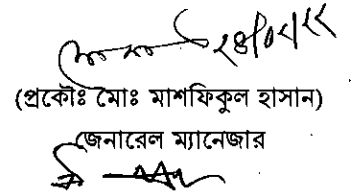 ২৪/০৫/২২
(প্রকৌঃ মোঃ মাশফিকুল হাসান)
জেনারেল ম্যানেজার